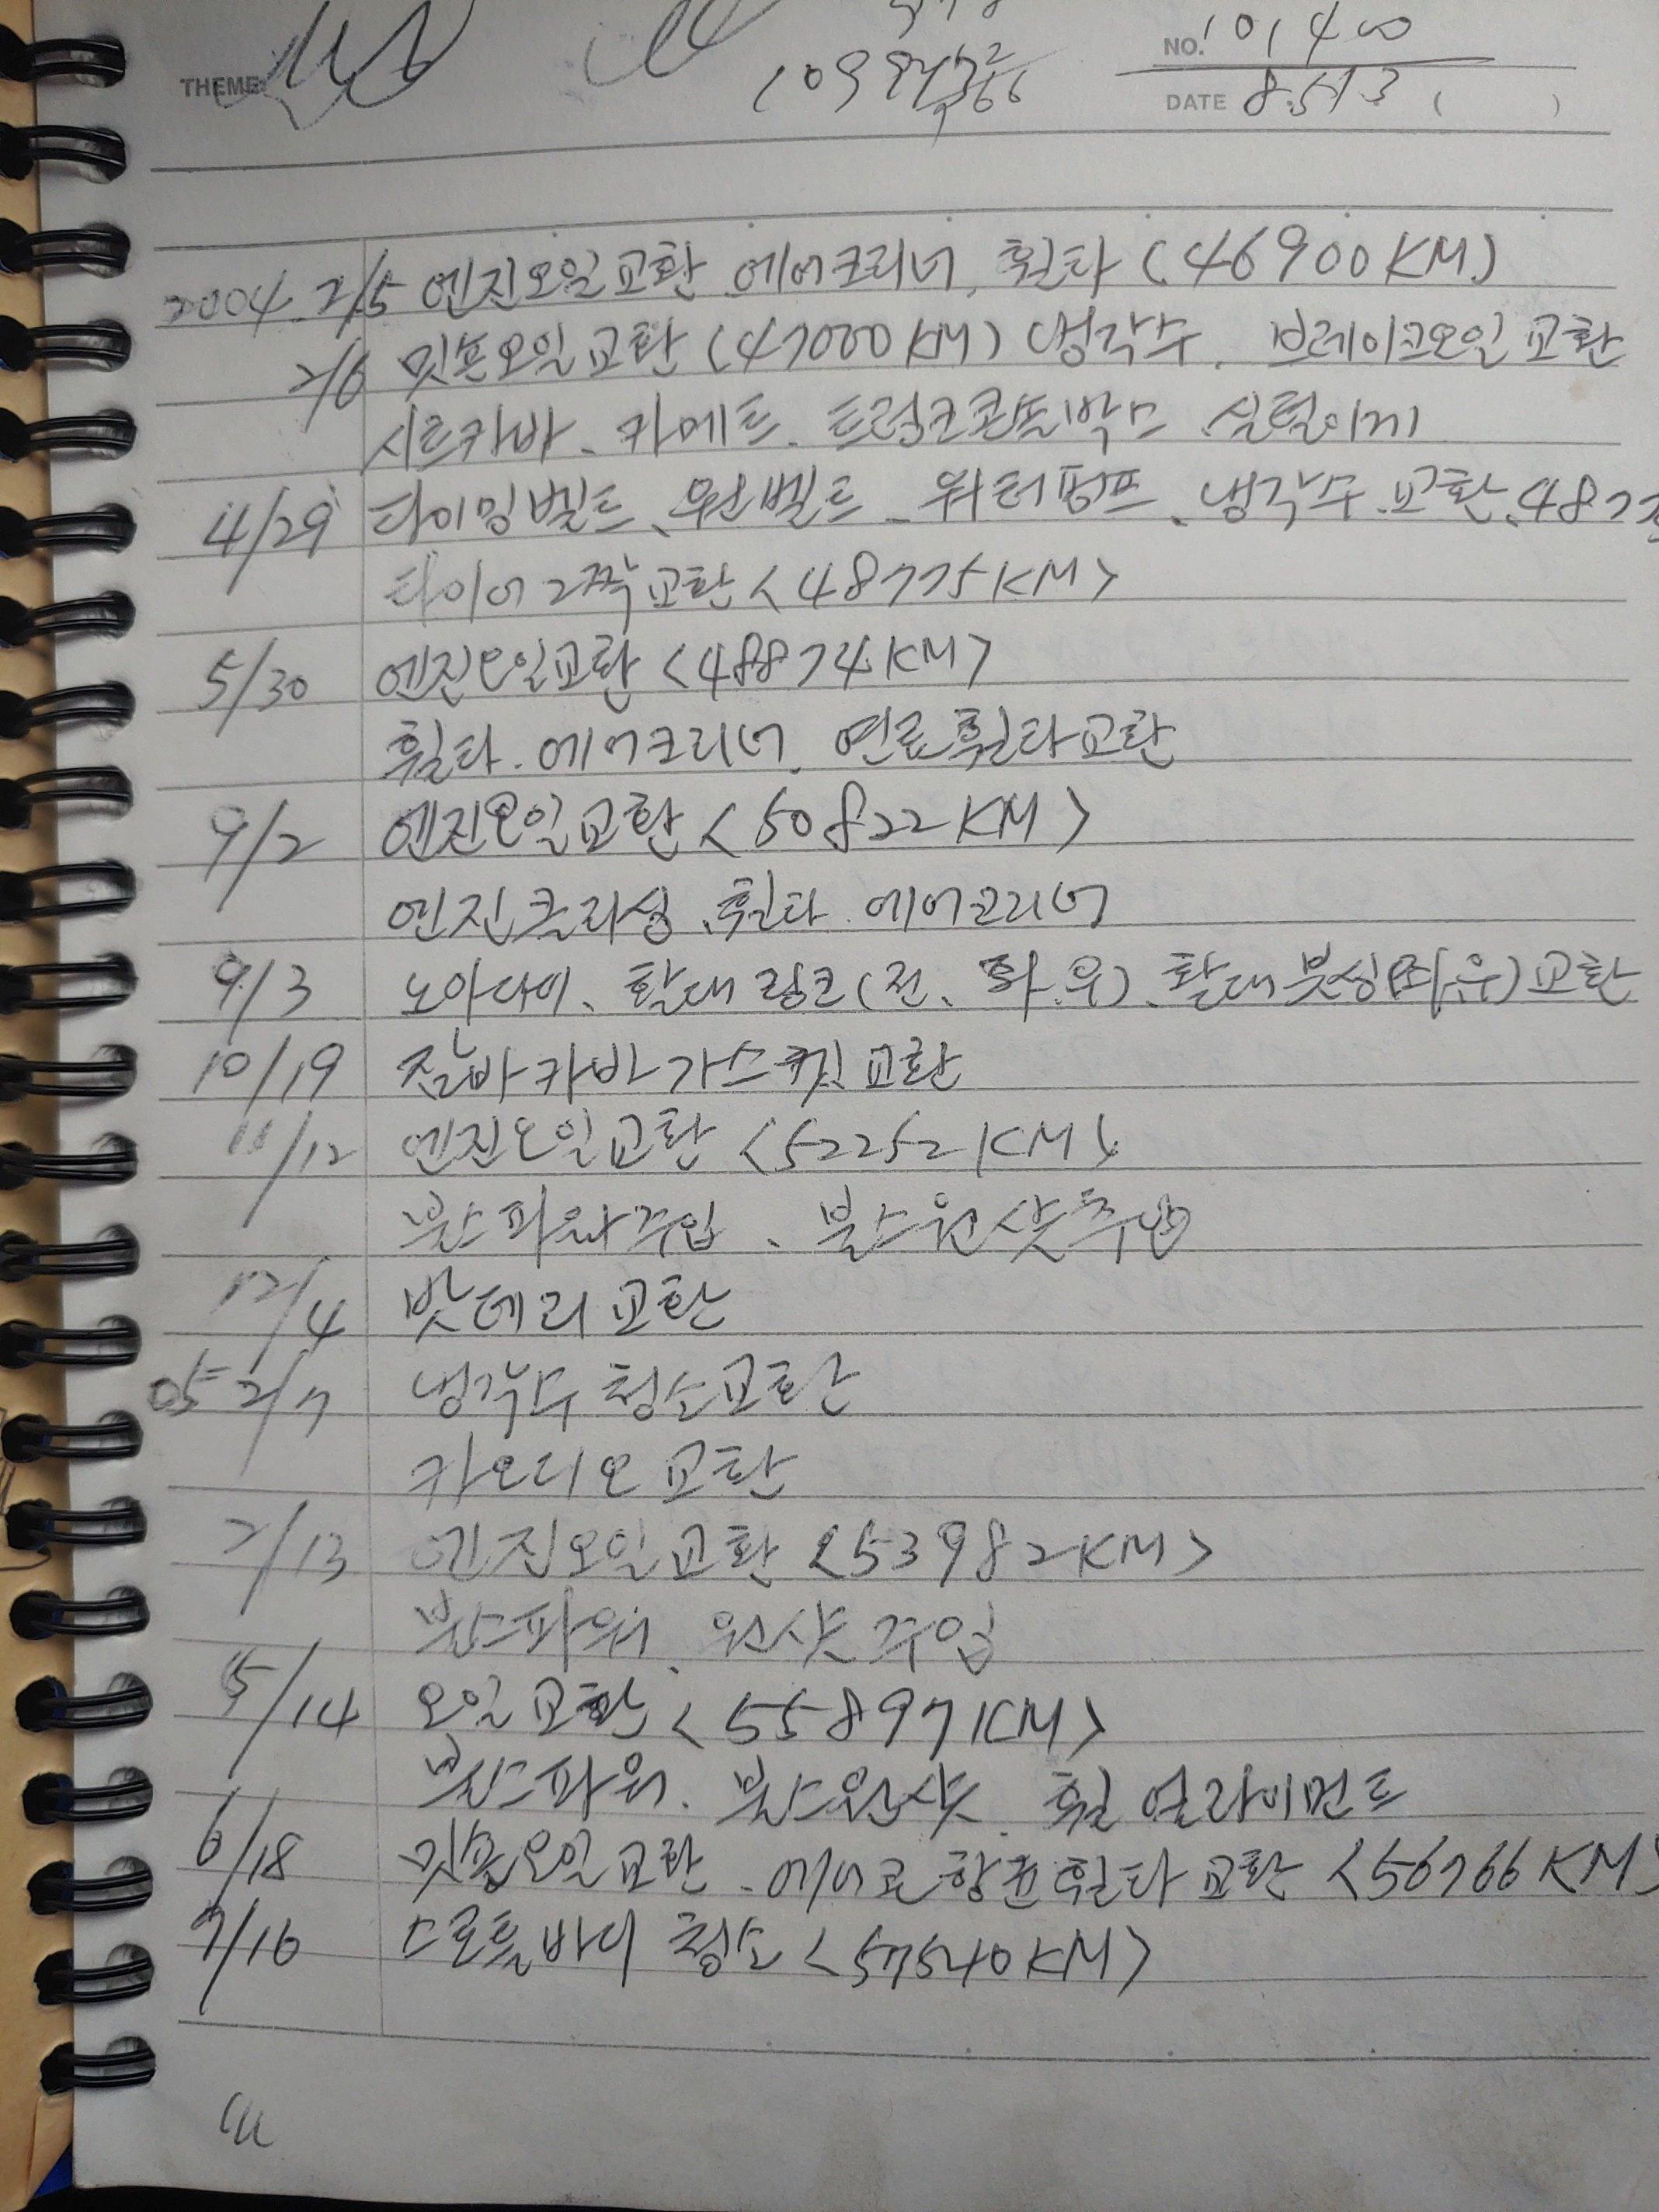 NO. 101400
THEME
DATE 8.513 ( )
2004. 2/5 엔진오일교환. 에어크리너. 훨타 (46900KM)
2/6 밋숀오일교환 (47000KM) 냉각수. 브레이크오일교환
시트카바. 카메트. 트렁크콘솔박스
4/29 타이밍벨트. 원벨트. 워터펌프. 냉각수.교환.487
타이어2짝교환<48775KM>
5/30 엔진오일교환<48874KM>
훨타. 에어크리너. 연료훨타교환
9/2 엔진오일교환<50822KM>
엔진클리싱.훨타.에어크리너
9/3 노아다이. 활대링크(전. 좌.우). 활대붓싱(좌,우)교환
10/19 잠바카바가스켓교환
11/12 엔진오일교환<52252KM>
불스파워주입. 불스원샷주입
12/4 밧데리교환
05 2/7 냉각수청소교환
카오디오교환
2/13 엔진오일교환<53982KM>
불스파워. 원샷주입
5/14 오일교환<55897KM>
불스파워. 불스원샷. 휠얼라이먼트
6/18 밋숀오일교환. 에어콘향균훨타교환<56766KM>
7/16 스로틀바디청소<57540KM>